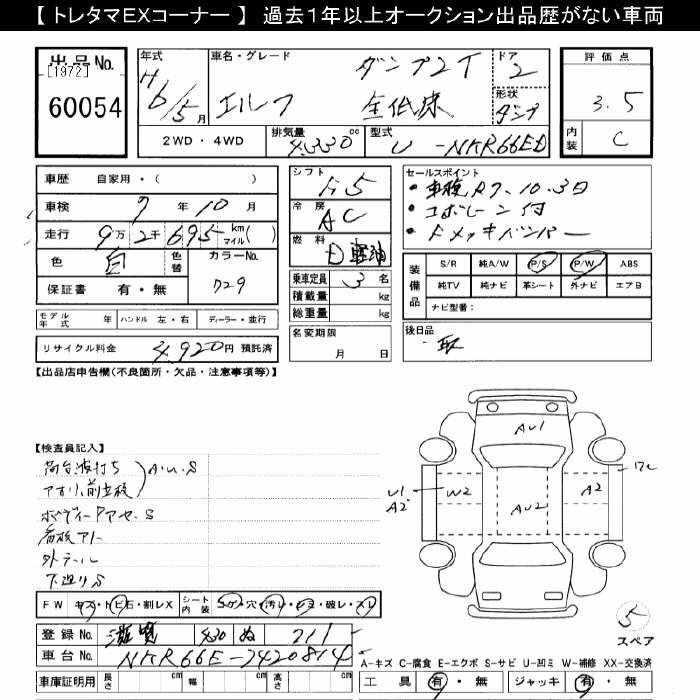 【 トレタマEXコーナー 】 過去1年以上オークション出品歴がない車両
出品No.
[1972]
60054
年式
H6/5月
車名・グレード
エルフ
ダンプ2T
全低床
ドア
2
形状
ダンプ
評価点
3.5
内装
C
2WD・4WD
排気量
4330cc
型式
U-NKR66ED
車歴 自家用・( )
車検 7年10月
走行 9万2千695 km マイル( )
色 白 色替
カラーNo.
729
保証書 有・無
シフト
F5
冷房
AC
燃料
D 軽油
乗車定員 3名
積載量 kg
総重量 kg
セールスポイント
・車検R7.10.3日
・コボレーン付
・ドメッキバンパー
装備品
S/R 純A/W P/S P/W ABS
純TV 純ナビ 革シート 外ナビ エアB
ナビ型番:
モデル年式 年 ハンドル 左・右 ディーラー・並行
リサイクル料金 4,920円 預託済
名変期限
月 日
後日品
取
【出品店申告欄(不良箇所・欠品・注意事項等)】
【検査員記入】
荷台波打ち
アオリ、前立板
A.U.S
ボディーPアセ.S
看板アト
外テール
下廻りS
AU1
U1
A2
W2
AU2
A2
5
スペア
FW キズ・トビ石・割レX
シート内装 コゲ・穴・汚レ・シミ・破レ・スレ
登録No. 滋賀 430 ぬ 211
車台No. NKR66E-7420814
A-キズ C-腐食 E-エクボ S-サビ U-凹ミ W-補修 XX-交換済
車庫証明用 長さ cm 幅 cm 高さ cm
工具 有・無 ジャッキ 有・無